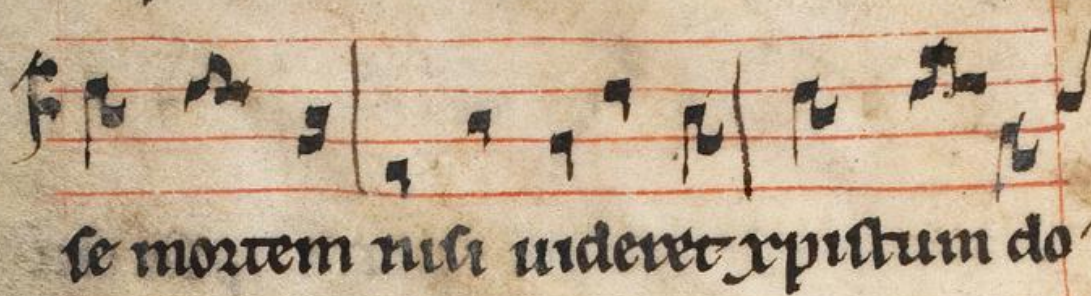 se mortem nisi uideret xpistum do